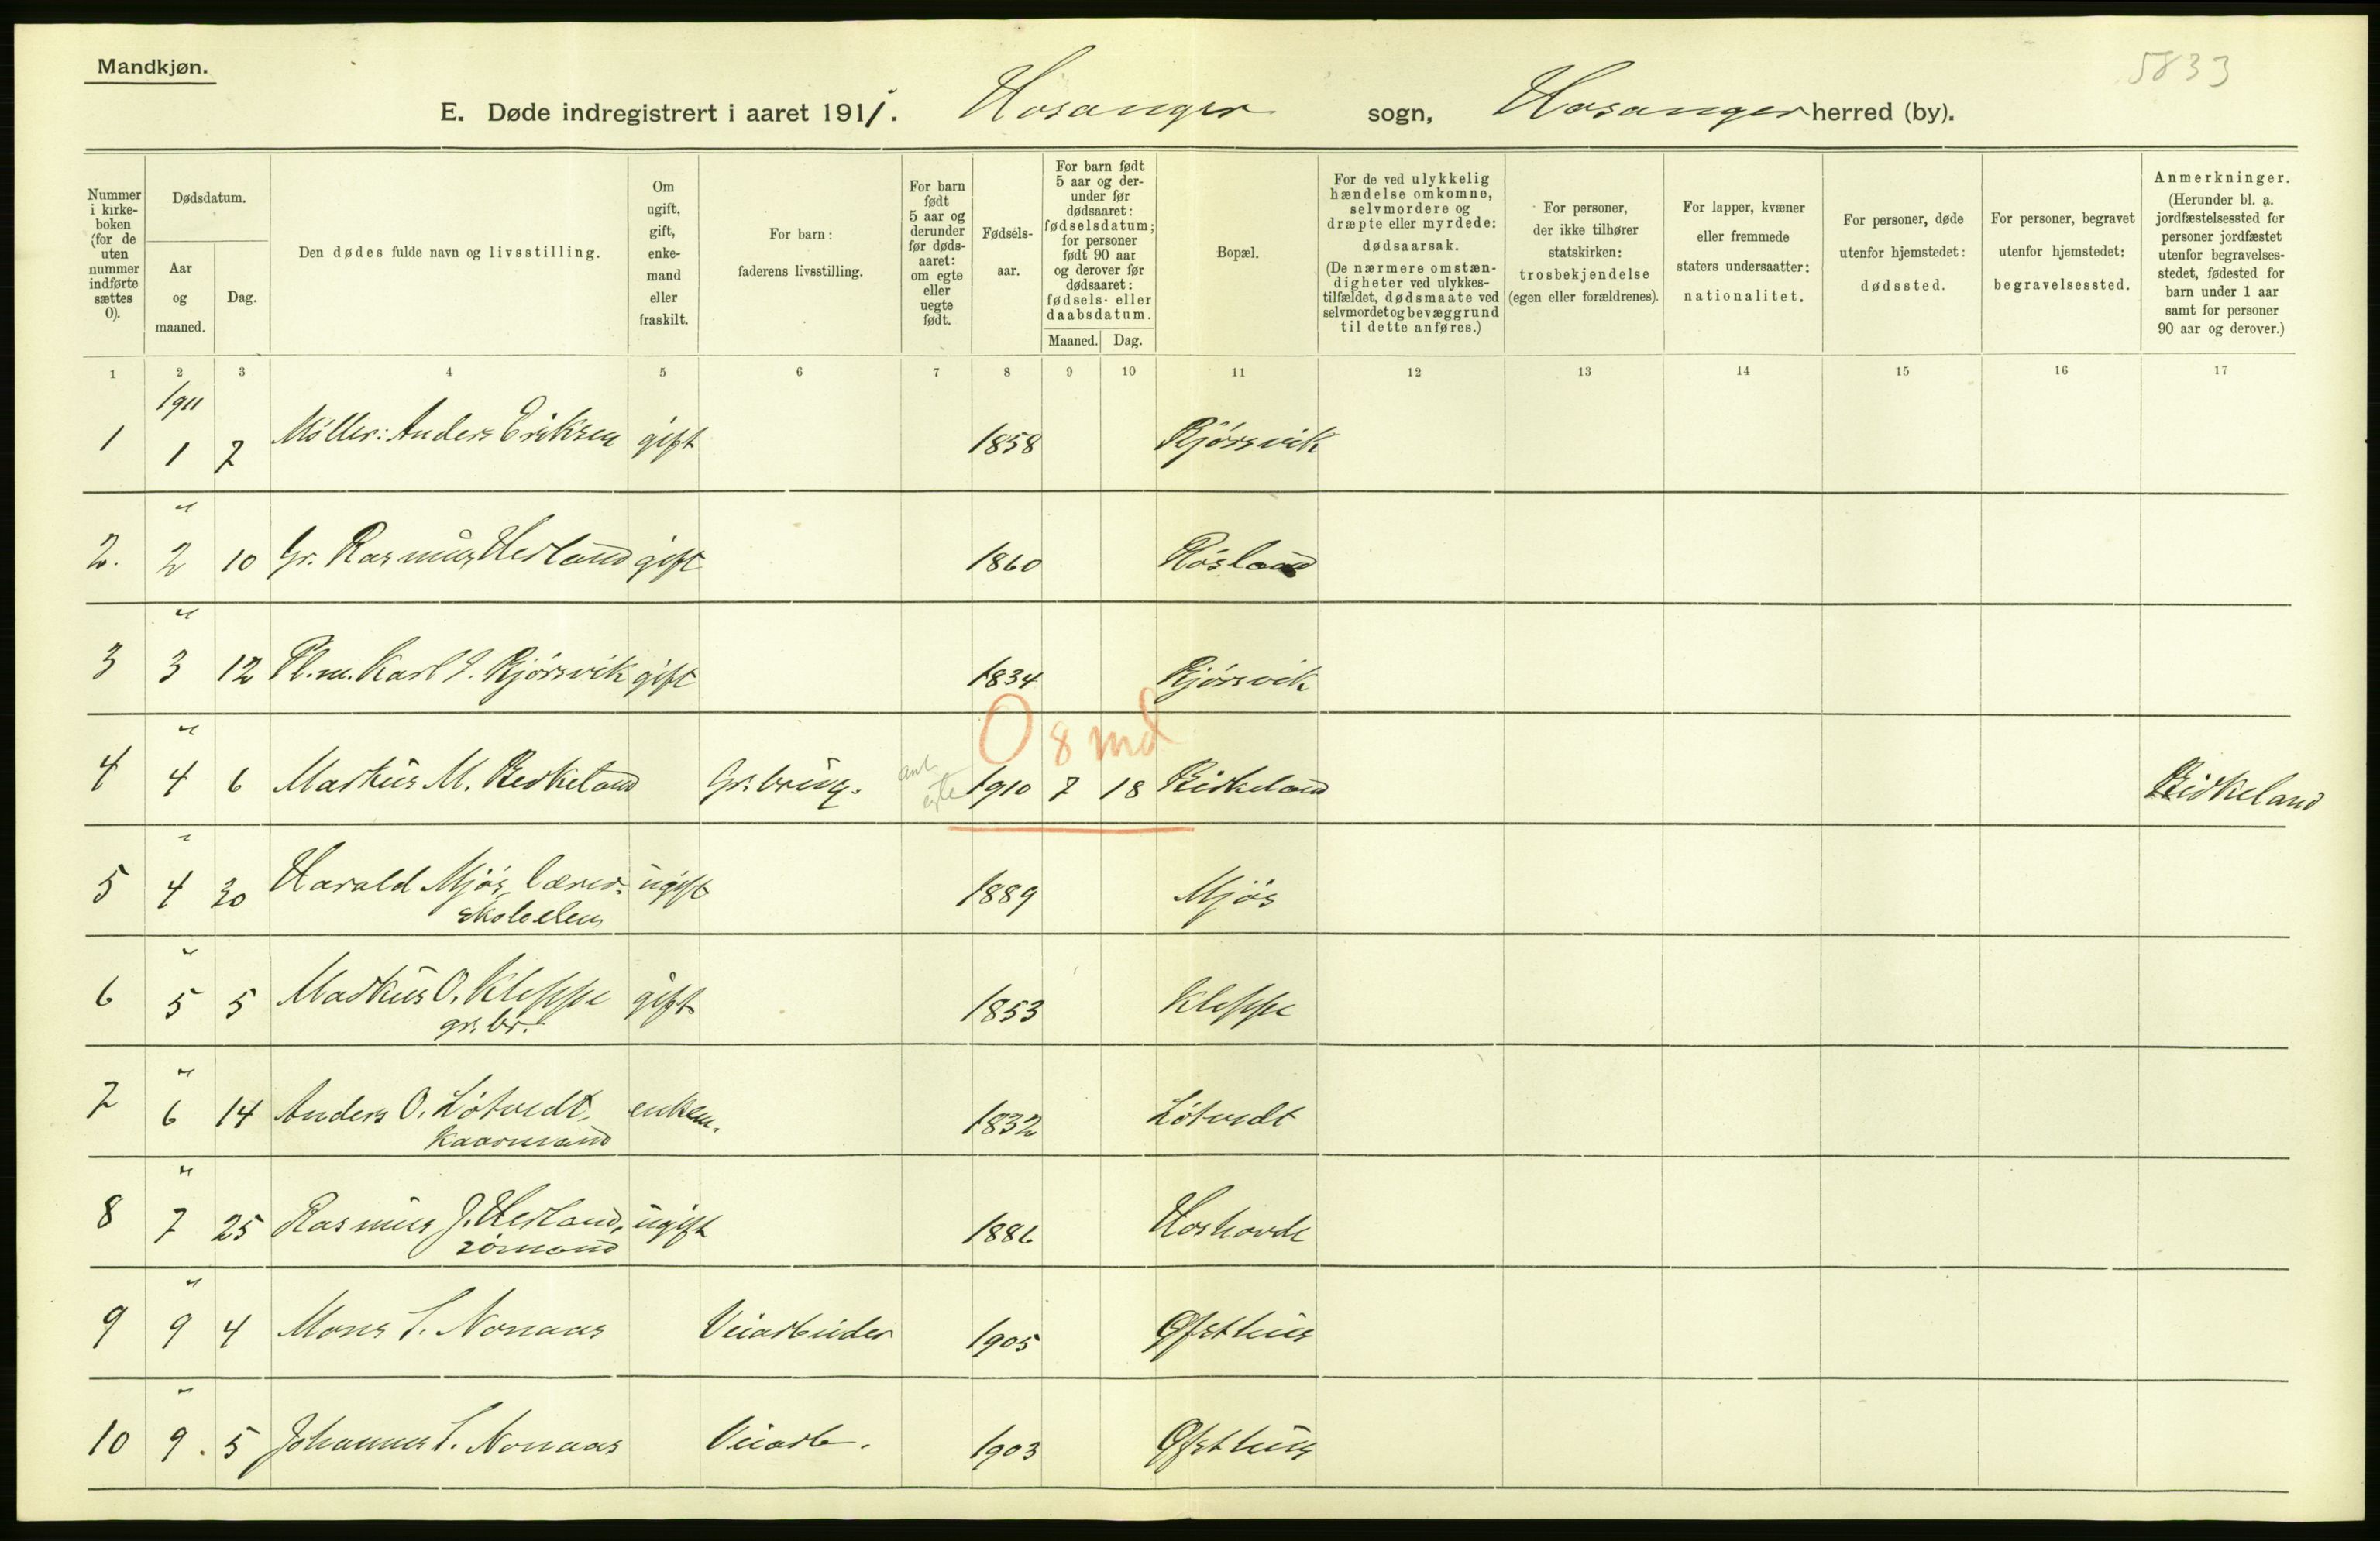 Mandkjøn.
5833
E. Døde indregistrert i aaret 1911. Hosanger sogn, Hosanger herred (by).
Nummer i kirke-boken (for de uten nummer indførte sættes 0).
Dødsdatum.
Aar og maaned.
Dag.
Den dødes fulde navn og livsstilling.
Om ugift, gift, enke-mand eller fraskilt.
For barn: faderens livsstilling.
For barn født 5 aar og derunder før døds-aaret: om egte eller uegte født.
Fødsels-aar.
For barn født 5 aar og der-under før dødsaaret: fødselsdatum; for personer født 90 aar og derover før dødsaaret: fødsels- eller daabsdatum.
Maaned. Dag.
Bopæl.
For de ved ulykkelig hændelse omkomne, selvmordere og dræpte eller myrdede: dødsaarsak. (De nærmere omstæn-digheter ved ulykkes-tilfældet, dødsmaate ved selvmordet og bevæggrund til dette anføres.)
For personer, der ikke tilhører statskirken: trosbekjendelse (egen eller forældrenes).
For lapper, kvæner eller fremmede staters undersaatter: nationalitet.
For personer, døde utenfor hjemstedet: dødssted.
For personer, begravet utenfor hjemstedet: begravelsessted.
Anmerkninger. (Herunder bl. a. jordfæstelsessted for personer jordfæstet utenfor begravelses-stedet, fødested for barn under 1 aar samt for personer 90 aar og derover.)
1 2 3 4 5 6 7 8 9 10 11 12 13 14 15 16 17
1911
1 1 7 Møller: Anders Eriksen gift 1858 Bjørsvik
"
2. 2 10 Gr. Rasmus Herland gift 1860 Røsland
"
3 3 12 Pl.m. Karl J. Bjørsvik gift 1834 Bjørsvik
0 8 md
"
4 4 6 Markus M. Birkeland Gr.brug. ant. egte 1910 7 18 Birkeland Birkeland
"
5 4 30 Harald Mjøs, lærer- ugift 1889 Mjøs
skoleelev
"
6 5 5 Markus O. Kleppe gift 1853 Kleppe
gr.br.
"
7 6 14 Anders O. Løtvedt, enkem. 1832 Løtvedt
Kaarmand
"
8 7 25 Rasmus J. Herland, ugift 1886 Hoshovde
sømand
"
9 9 4 Mons S. Nonaas Veiarbeider 1905 Øfsthus
"
10 9. 5 Johannes S. Nonaas Veiarb. 1903 Øfsthus